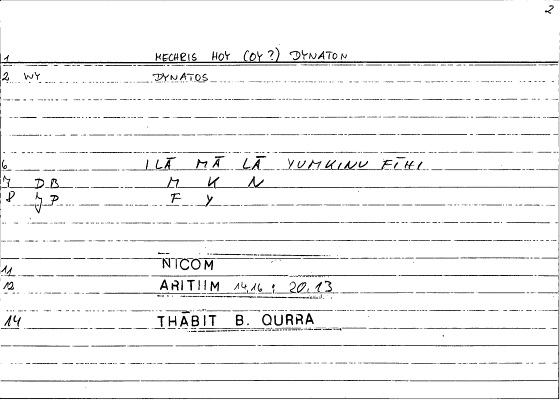 2
1 MECHRIS HOY (OY?) DYNATON
2 WY DYNATOS
6 ILĀ MĀ LĀ YUMKINU FĪHI
7 DB M K N
8 P F Y
11 NICOM
12 ARITIIM 14,16 : 20,13
14 THĀBIT B. QURRA